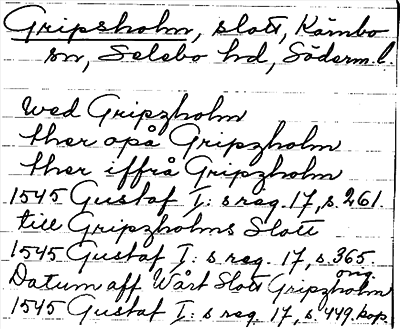 Gripsholm, slott, Kärnbo
sn, Selebo hd, Söderm.l.
wed Gripzholm
ther opå Gripzholm
ther iffrå Gripzholm
1545 Gustaf I:s reg. 17, s. 261.
till Gripzholms Slott
1545 Gustaf I:s reg. 17, s. 365.
orig.
Datum aff Wårt Slott Gripzholm
1545 Gustaf I:s reg. 17, s. 449, kop.